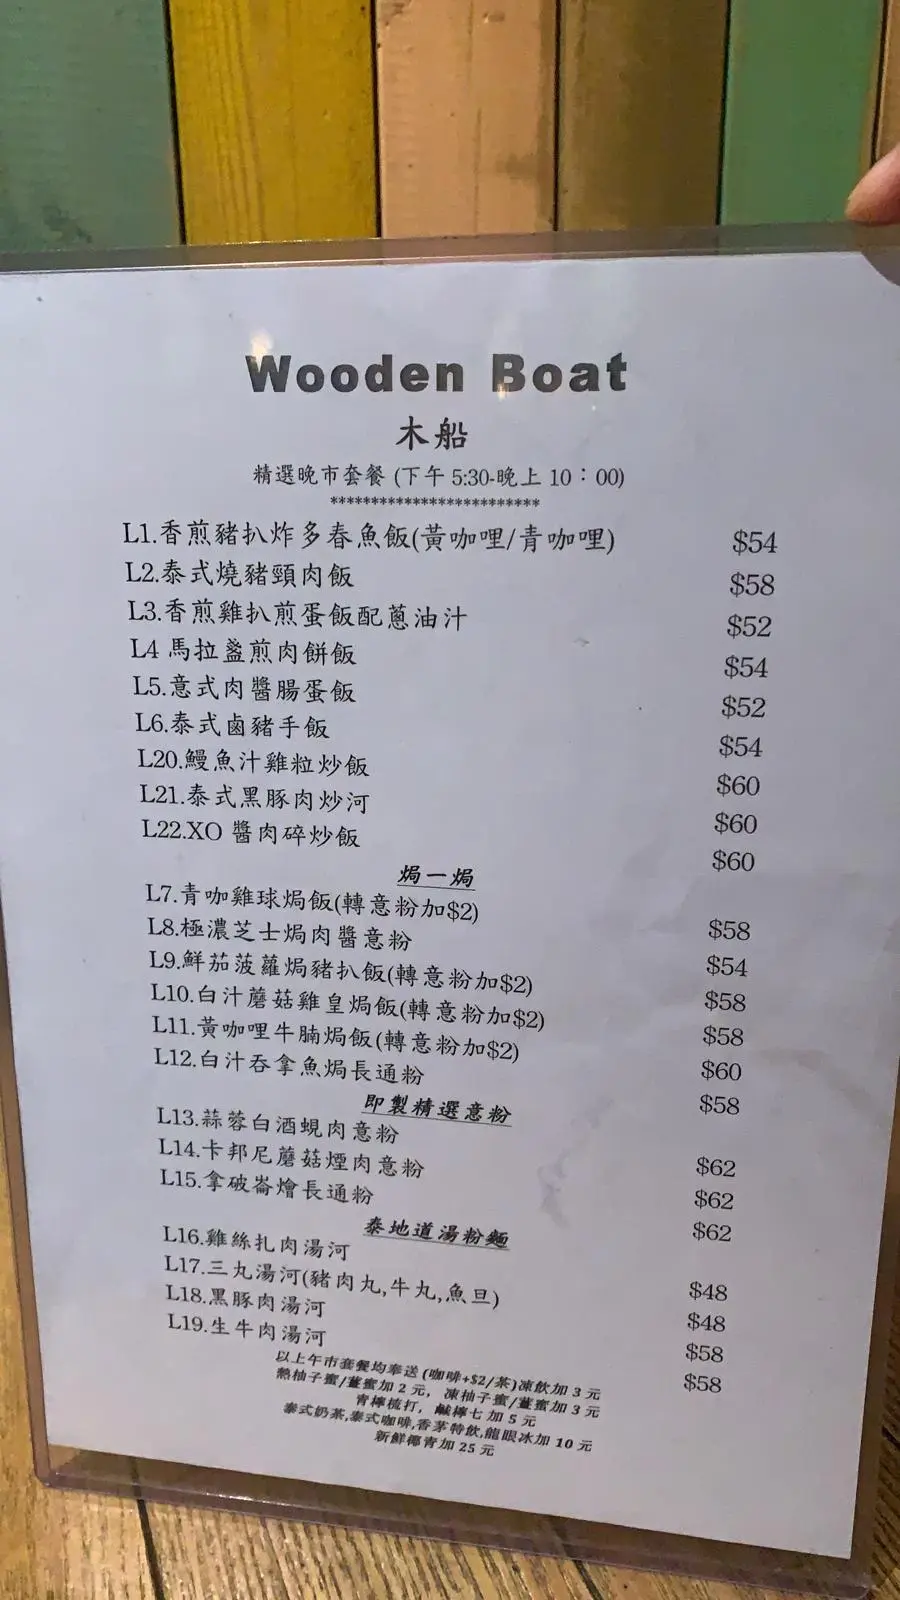 Wooden Boat
木船
精選晚市套餐 (下午 5:30-晚上 10：00)
*************************
L1.香煎豬扒炸多春魚飯(黃咖哩/青咖哩) $54
L2.泰式燒豬頸肉飯 $58
L3.香煎雞扒煎蛋飯配蔥油汁 $52
L4 馬拉盞煎肉餅飯 $54
L5.意式肉醬腸蛋飯 $52
L6.泰式鹵豬手飯 $54
L20.鰻魚汁雞粒炒飯 $60
L21.泰式黑豚肉炒河 $60
L22.XO 醬肉碎炒飯 $60
焗一焗
L7.青咖雞球焗飯(轉意粉加$2) $58
L8.極濃芝士焗肉醬意粉 $54
L9.鮮茄菠蘿焗豬扒飯(轉意粉加$2) $58
L10.白汁蘑菇雞皇焗飯(轉意粉加$2) $58
L11.黃咖哩牛腩焗飯(轉意粉加$2) $60
L12.白汁吞拿魚焗長通粉 $58
即製精選意粉
L13.蒜蓉白酒蜆肉意粉 $62
L14.卡邦尼蘑菇煙肉意粉 $62
L15.拿破崙燴長通粉 $62
泰地道湯粉麵
L16.雞絲扎肉湯河 $48
L17.三丸湯河(豬肉丸,牛丸,魚旦) $48
L18.黑豚肉湯河 $58
L19.生牛肉湯河 $58
以上午市套餐均奉送 (咖啡+$2/茶)凍飲加 3 元
熱柚子蜜/薑蜜加 2 元，凍柚子蜜/薑蜜加 3 元
青檸梳打，鹹檸七 加 5 元
泰式奶茶,泰式咖啡,香茅特飲,龍眼冰加 10 元
新鮮椰青加 25 元